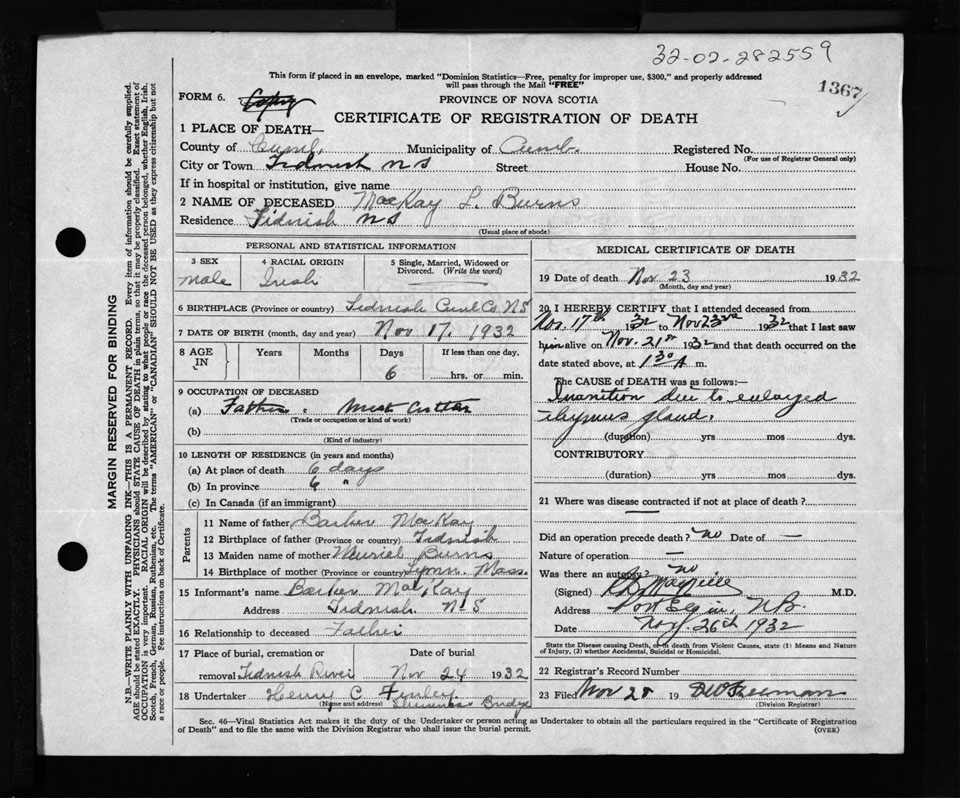 32-02-282559
This form if placed in an envelope, marked "Dominion Statistics—Free, penalty for improper use, $300," and properly addressed
will pass through the Mail "FREE"
1367
FORM 6. Copy
PROVINCE OF NOVA SCOTIA
CERTIFICATE OF REGISTRATION OF DEATH
1 PLACE OF DEATH—
County of Cumb. Municipality of Cumb. Registered No.
(For use of Registrar General only)
City or Town Tidnish NS Street House No.
If in hospital or institution, give name
2 NAME OF DECEASED MacKay L. Burns
Residence Tidnish NS
(Usual place of abode)
PERSONAL AND STATISTICAL INFORMATION
3 SEX 4 RACIAL ORIGIN 5 Single, Married, Widowed or
Divorced. (Write the word)
male Irish
6 BIRTHPLACE (Province or country) Tidnish Co NS
7 DATE OF BIRTH (month, day and year) Nov 17. 1932
8 AGE IN Years Months Days If less than one day.
6 hrs. or min.
9 OCCUPATION OF DECEASED
(a) Father Meat Cutter
(Trade or occupation or kind of work)
(b)
(Kind of industry)
10 LENGTH OF RESIDENCE (in years and months)
(a) At place of death 6 days
(b) In province 6 "
(c) In Canada (if an immigrant)
Parents
11 Name of father Barker MacKay
12 Birthplace of father (Province or country) Tidnish
13 Maiden name of mother Muriel Burns
14 Birthplace of mother (Province or country) Lynn. Mass.
15 Informant's name Barker MacKay
Address Tidnish. NS
16 Relationship to deceased Father
17 Place of burial, cremation or removal Tidnish River
Date of burial Nov 24 1932
18 Undertaker Henry C
(Name and address) Bridge
MEDICAL CERTIFICATE OF DEATH
19 Date of death Nov 23 1932
(Month, day and year)
20 I HEREBY CERTIFY that I attended deceased from
Nov. 17th 1932 to Nov 23rd 1932 that I last saw
him alive on Nov. 21st 1932 and that death occurred on the
date stated above, at 1 30 A m.
The CAUSE OF DEATH was as follows:—
Inanition due to enlarged
thymus gland.
(duration) yrs mos dys.
CONTRIBUTORY
(duration) yrs mos dys.
21 Where was disease contracted if not at place of death?
Did an operation precede death? no Date of —
Nature of operation —
Was there an autopsy? no
(Signed) M.D.
Address Port Elgin, N.B.
Date Nov 26th 1932
State the Disease causing Death, or in death from Violent Causes, state (1) Means and Nature
of Injury, (2) whether Accidental, Suicidal or Homicidal.
22 Registrar's Record Number
23 Filed Nov 28 19
(Division Registrar)
Sec. 46—Vital Statistics Act makes it the duty of the Undertaker or person acting as Undertaker to obtain all the particulars required in the "Certificate of Registration
of Death" and to file the same with the Division Registrar who shall issue the burial permit.
(OVER)
MARGIN RESERVED FOR BINDING
N.B.—WRITE PLAINLY WITH UNFADING INK—THIS IS A PERMANENT RECORD. Every item of information should be carefully supplied.
AGE should be stated EXACTLY. PHYSICIANS should STATE CAUSE OF DEATH in plain terms, so that it may be properly classified. Exact statement of
OCCUPATION is very important. RACIAL ORIGIN will be described by stating to what people or race the deceased person belonged, whether English, Irish,
Scotch, French, German, Russian, Ruthenian, etc. The terms "AMERICAN" or "CANADIAN" SHOULD NOT BE USED as they express citizenship but not
a race or people. See instructions on back of Certificate.